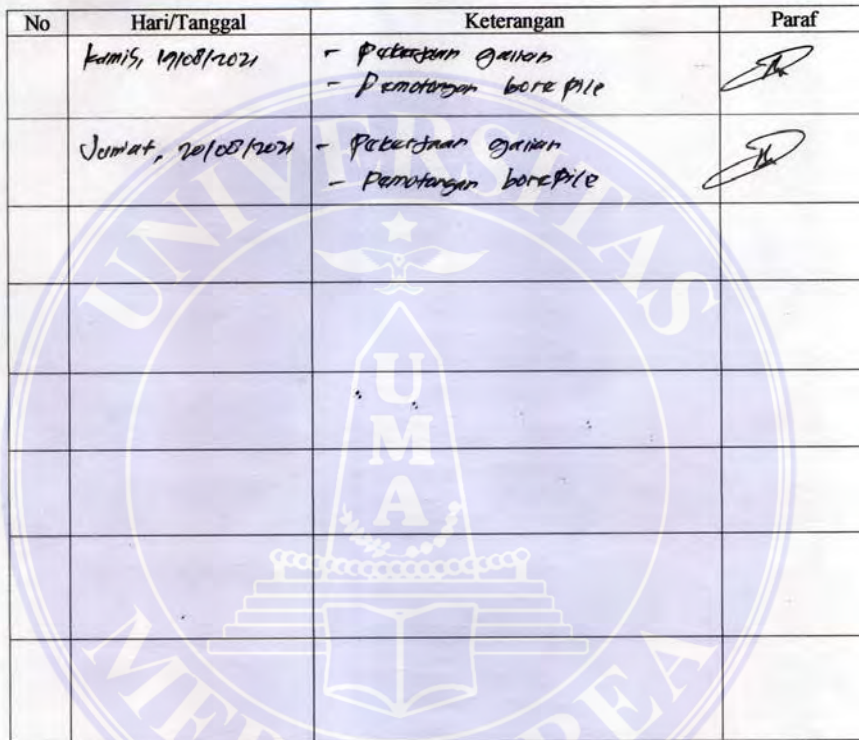 No Hari/Tanggal Keterangan Paraf
Kamis, 19/08/2021 - Pekerjaan galian
- Pemotongan bore pile
Jumat, 20/08/2021 - Pekerjaan galian
- Pemotongan borepile
UNIVERSITAS
UMA
MEDAN AREA